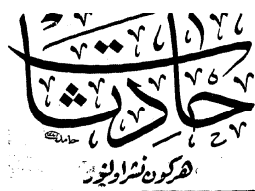 حادثات
حامد
هركون نشر اولنور